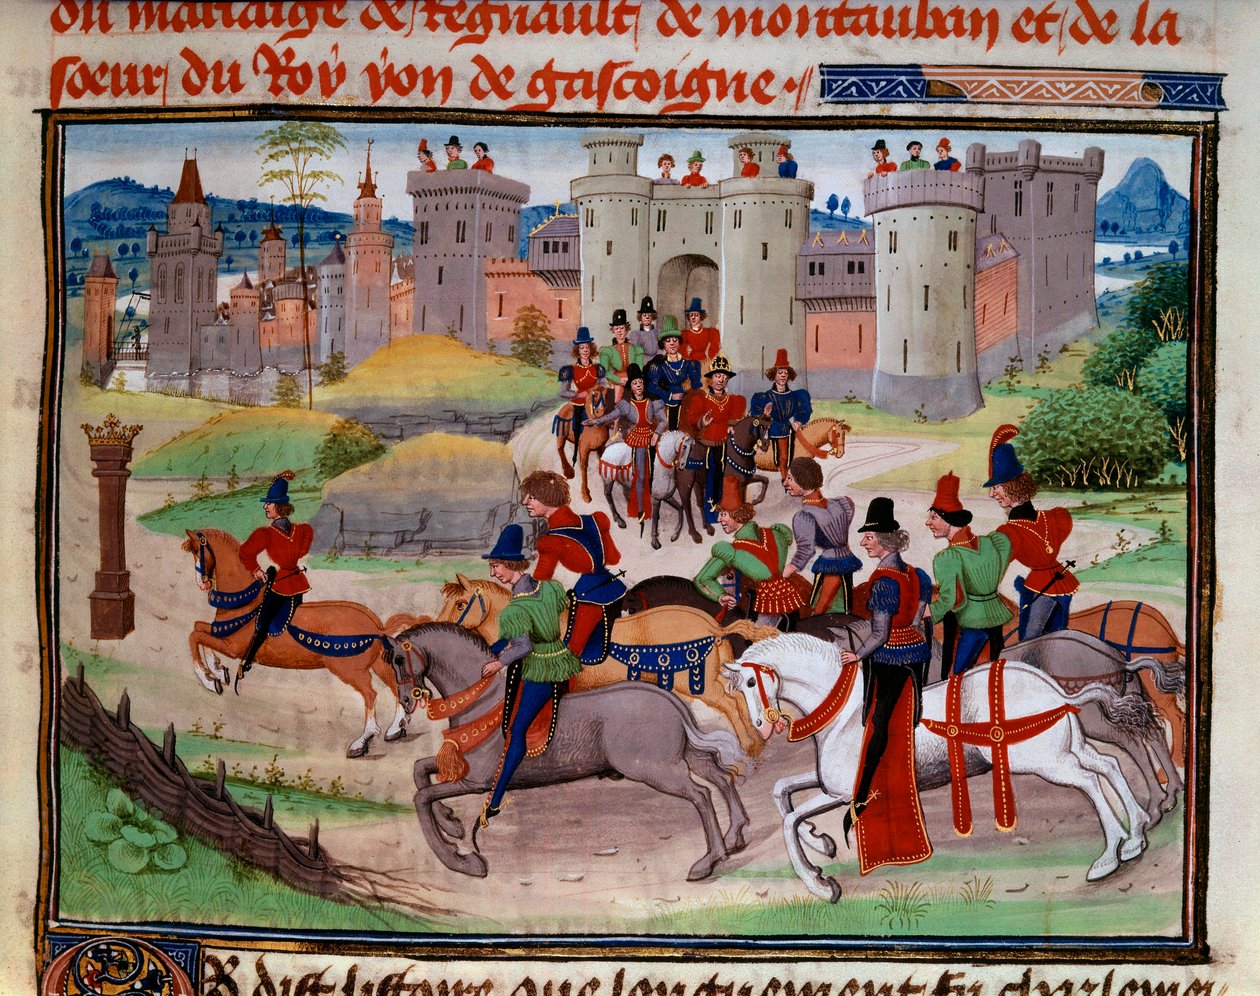 du mariaige de Regnault de montauban et de la
sœur du Roÿ ÿon de gascoigne
Or dist listoire que longuement fu charlema-